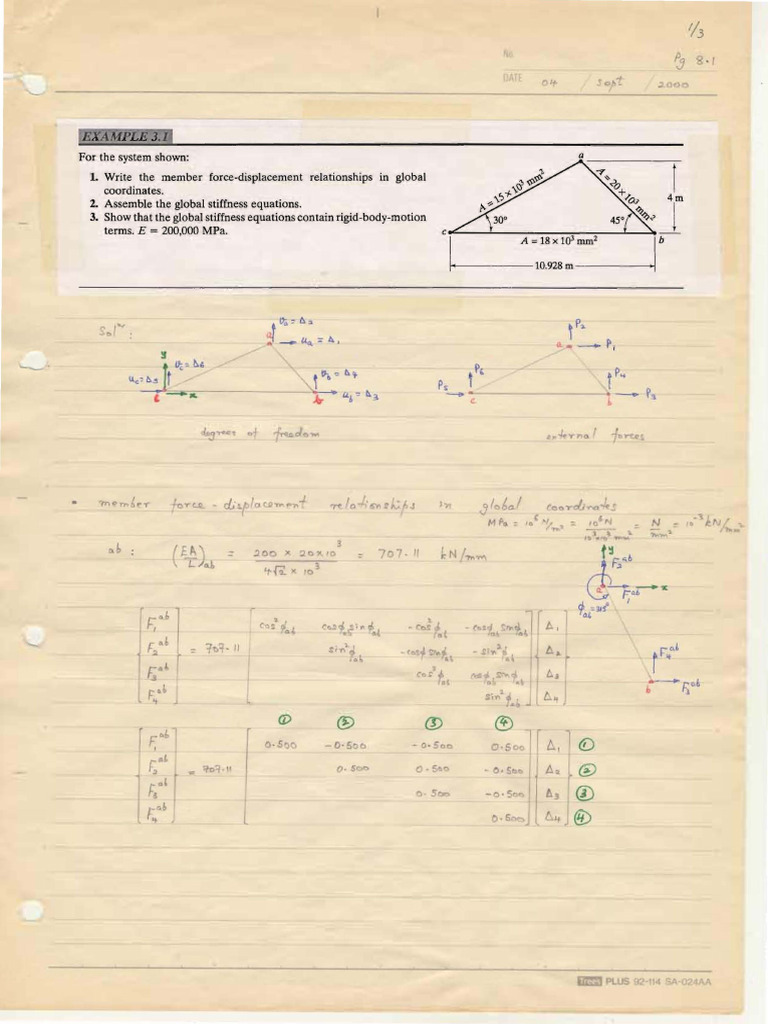 1/3
No.
Pg 8.1
DATE 04 / Sept / 2000
EXAMPLE 3.1
For the system shown:
1. Write the member force-displacement relationships in global
coordinates.
2. Assemble the global stiffness equations.
3. Show that the global stiffness equations contain rigid-body-motion
terms. E = 200,000 MPa.
a
A = 15 × 10³ mm²
A = 20 × 10³ mm²
4 m
30°
45°
c
b
A = 18 × 10³ mm²
10.928 m
Solⁿ:
v_a = Δ₂
a
u_a = Δ₁
y
v_c = Δ₆
u_c = Δ₅
c
x
v_b = Δ₄
b
u_b = Δ₃
P₂
a
P₁
P₆
P₅
c
P₄
b
P₃
degrees of freedom
external forces
• member force - displacement relationships in global coordinates
MPa = 10⁶ N/m² = 10⁶ N / 10³×10³ mm² = N/mm² = 10⁻³ kN/mm²
ab : (EA/L)ab = 200 × 20×10³ / 4√2 × 10³ = 707.11 kN/mm
y
F₂^ab
a
F₁^ab
x
φab = 315°
F₄^ab
b
F₃^ab
F₁^ab cos²φab cosφab sinφab -cos²φab -cosφab sinφab Δ₁
F₂^ab = 707.11 sin²φab -cosφab sinφab -sin²φab Δ₂
F₃^ab cos²φab cosφab sinφab Δ₃
F₄^ab sin²φab Δ₄
① ② ③ ④
F₁^ab 0.500 -0.500 -0.500 0.500 Δ₁ ①
F₂^ab = 707.11 0.500 0.500 -0.500 Δ₂ ②
F₃^ab 0.500 -0.500 Δ₃ ③
F₄^ab 0.500 Δ₄ ④
Trees PLUS 92-114 SA-024AA